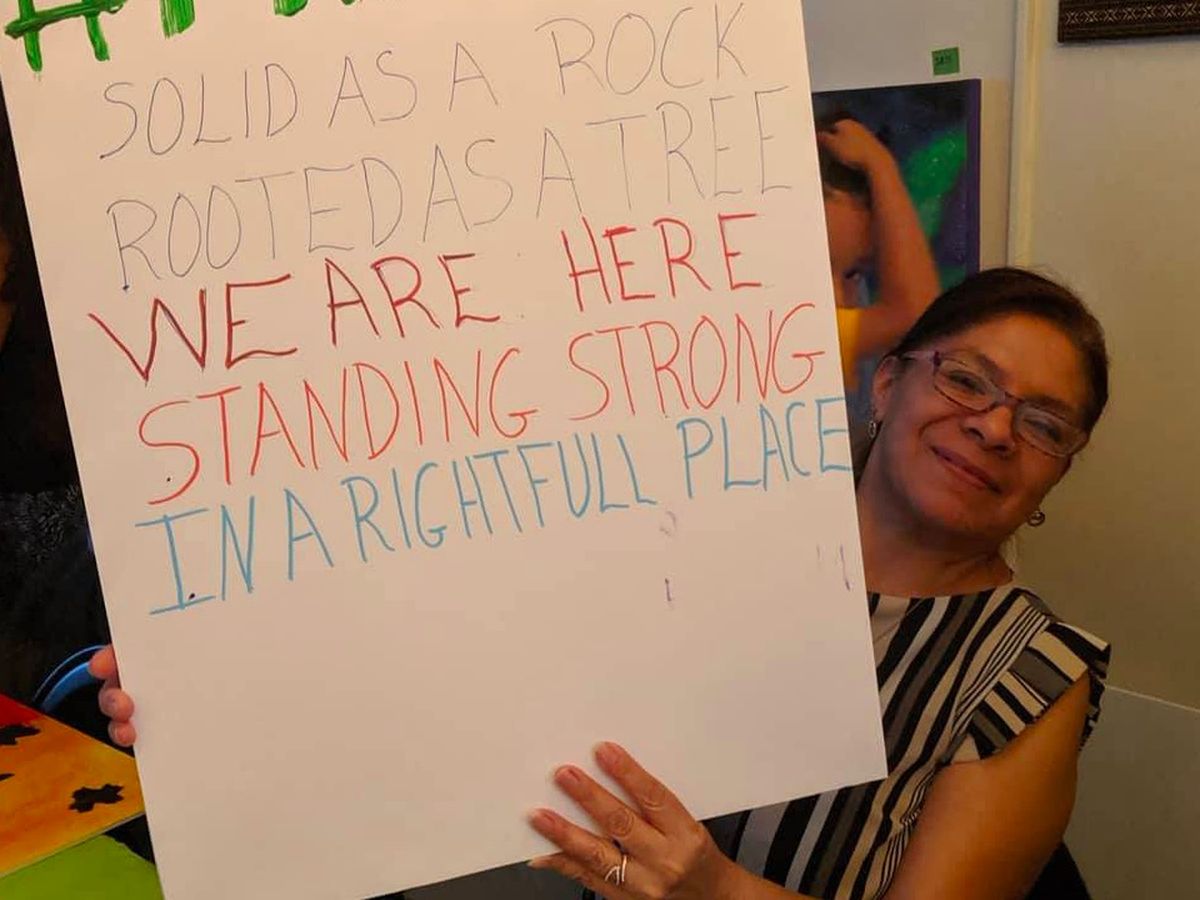 SOLID AS A ROCK
ROOTED AS A TREE
WE ARE HERE
STANDING STRONG
IN A RIGHTFULL PLACE